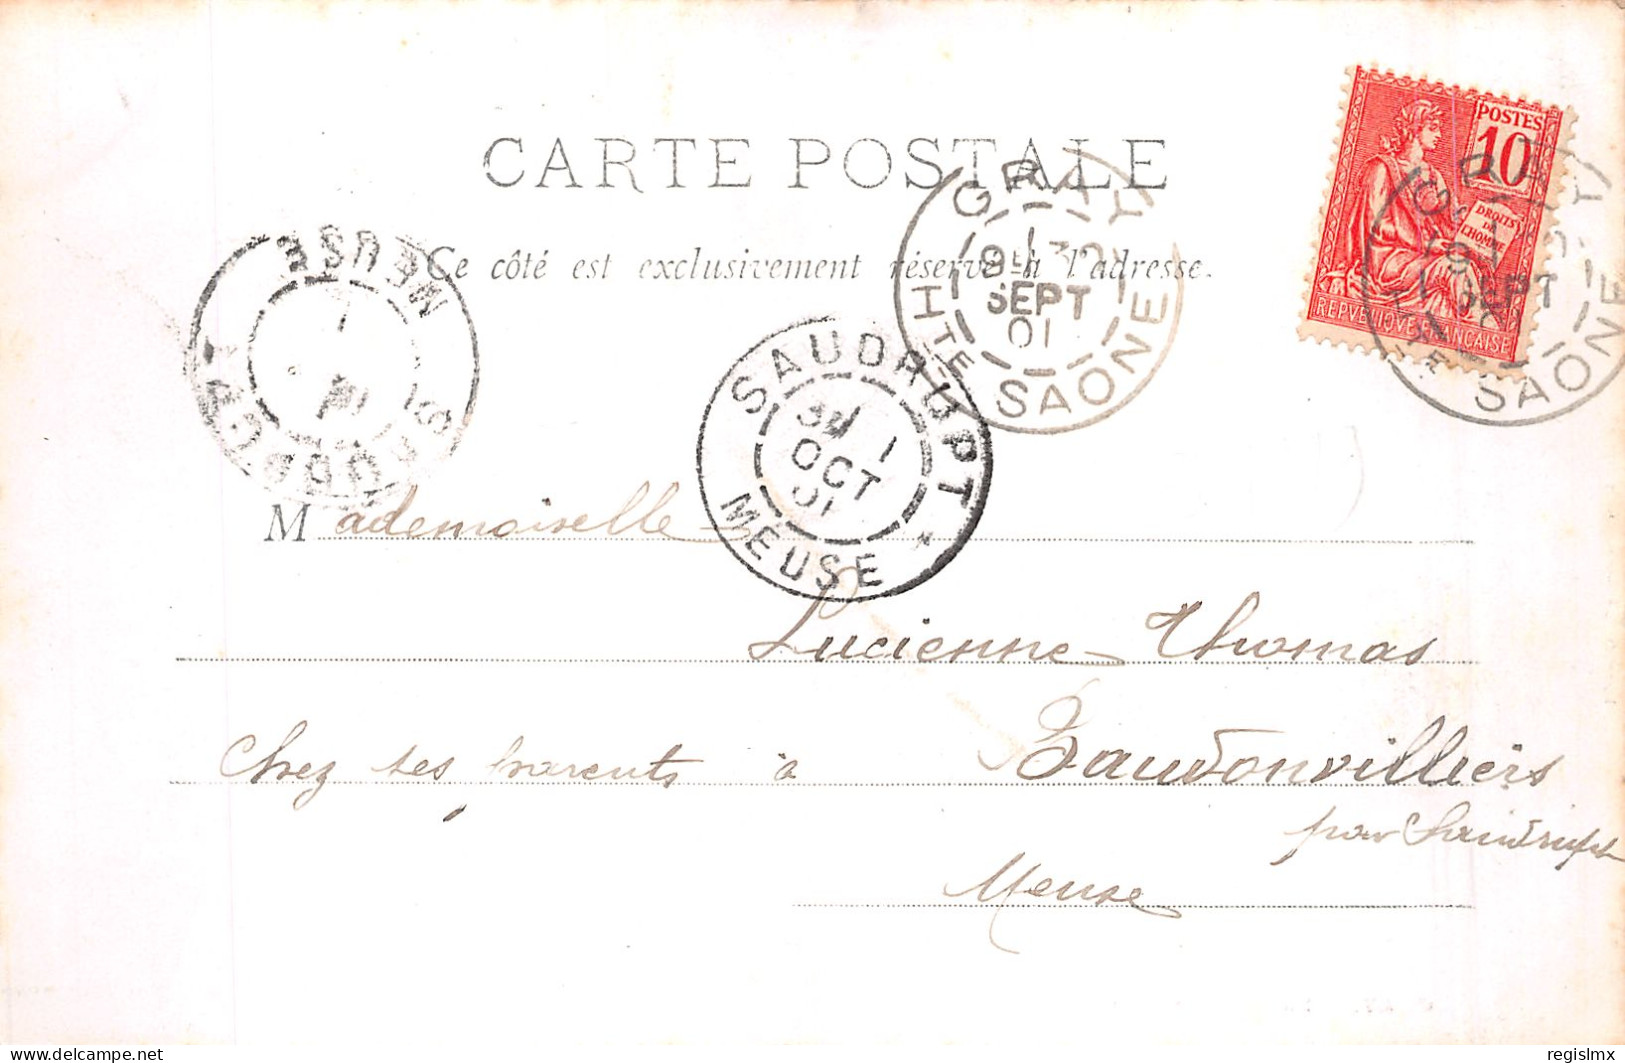 CARTE POSTALE
Ce côté est exclusivement réservé à l'adresse.
POSTES
10
DROITS
DE
L'HOMME
REPVBLIQVE FRANÇAISE
GRAY
SEPT
01
HTE SAONE
GRAY
SEPT
HTE SAONE
SAUDRUPT
1
OCT
01
MEUSE
MEUSE
Mademoiselle
Lucienne Thomas
Chez ses parents à Baudonvilliers
par Saudrupt
Meuse
regislmx
delcampe.net